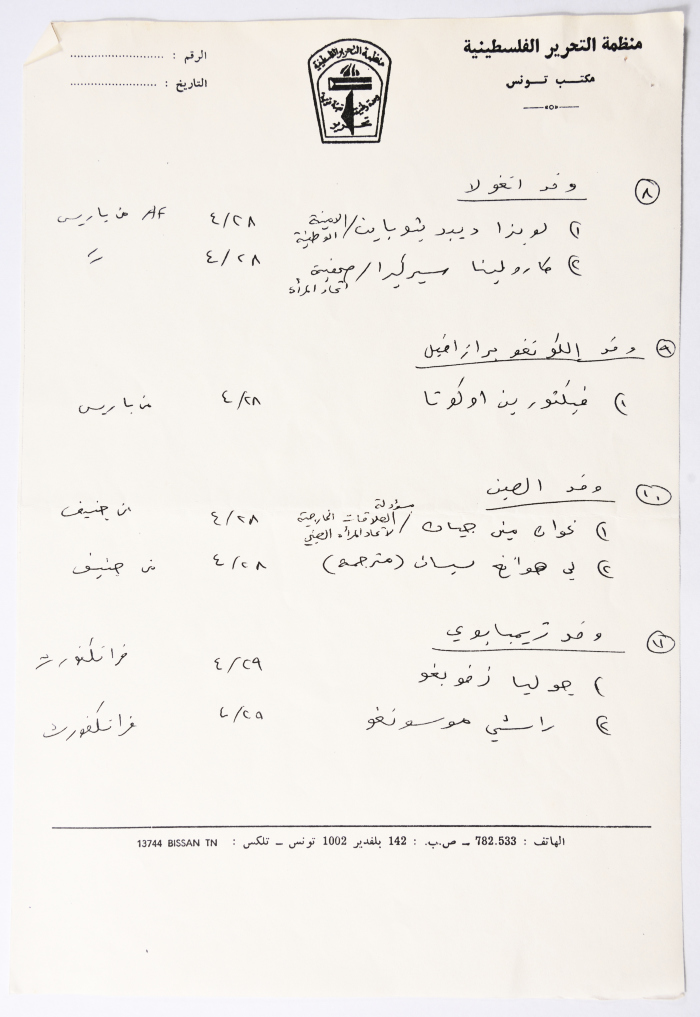 منظمة التحرير الفلسطينية
مكتب تونس
الرقم :
التاريخ :
منظمة التحرير الفلسطينية
وحدة وطنية تعبئة قومية
تحرير
٨ وفد انغولا
١) لويزا ديبد / الامينة الوطنية ٤/٢٨ AF من باريس
٢) كارولينا سيركيرا / صحفية اتحاد المرأة ٤/٢٨ =
٩ وفد الكونغو برازافيل
١) فيكتورين اوكوتا ٤/٢٨ من باريس
١٠ وفد الصين
١) غوان مين جيان / مسؤولة العلاقات الخارجية لاتحاد المرأة الصيني ٤/٢٨ من جنيف
٢) لي هوانغ سيان (مترجمة) ٤/٢٨ من جنيف
١١ وفد زيمبابوي
) جوليا زفوبغو ٤/٢٩ فرانكفورت
٢) راشي موسونغو ٤/٢٩ فرانكفورت
الهاتف : 782.533 ــ ص.ب. : 142 بلفدير 1002 تونس ــ تلكس : 13744 BISSAN TN